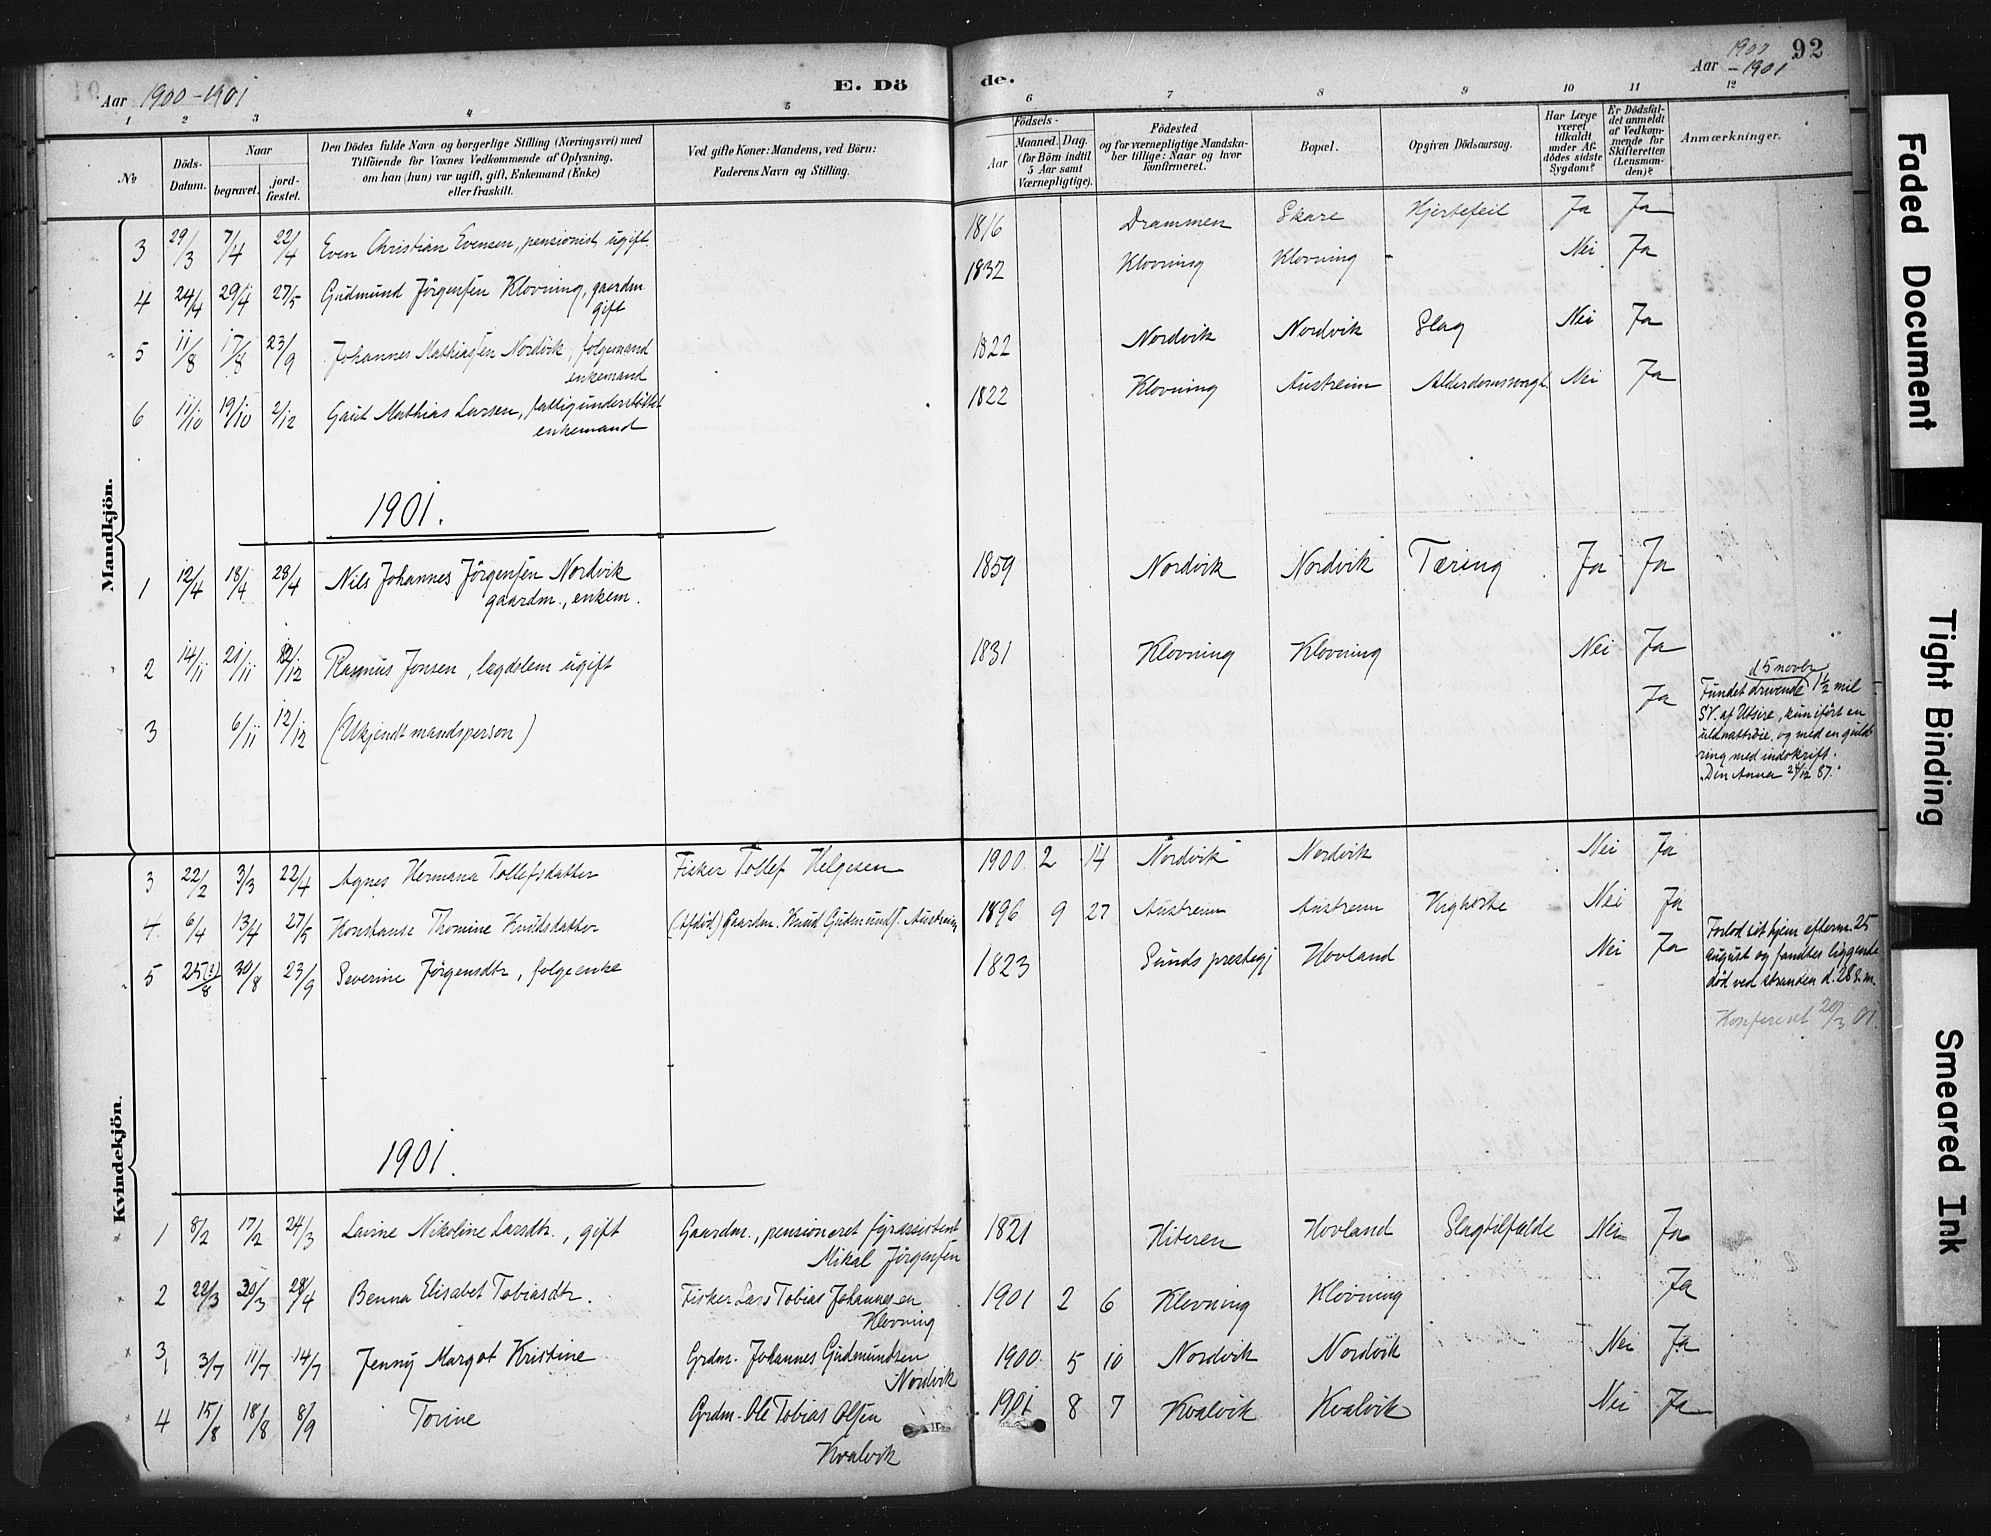 Aar 1900-1901
E. Dö
de.
Aar 1900 - 1901
92
1 2 3 4 5 6 7 8 9 10 11 12
№
Döds-Datum.
Naar
begravet.
jord-fæstet.
Den Dödes fulde Navn og borgerlige Stilling (Næringsvei) med
Tilföiende for Voxnes Vedkommende af Oplysning.
om han (hun) var ugift, gift, Enkemand (Enke)
eller fraskilt.
Ved gifte Koner: Mandens, ved Börn:
Faderens Navn og Stilling.
Födsels-
Aar
Maaned. Dag.
(for Börn indtil
5 Aar samt
Værnepligtige).
Födested
og for værnepligtige Mandska-
ber tillige: Naar og hvor
konfirmeret.
Bopæl.
Opgiven Dödsaarsag.
Har Læge
været
tilkaldt
under Af-
dödes sidste
Sygdom?
Er Dödsfal-
det anmeldt
af Vedkom-
mende for
Skifteretten
(Lensman-
den)?
Anmærkninger.
Mandkjön.
3 29/3 7/4 22/4 Even Christian Evensen, pensionist, ugift 1816 Drammen Skare Hjertefeil Ja Ja
4 24/4 29/4 27/5 Gudmund Jörgensen Klovning, gaardm 1832 Klovning Klovning - Nei Ja
gift
5 11/8 17/8 23/9 Johannes Mathiasen Nordvik, folgemand 1822 Nordvik Nordvik Slag Nei Ja
enkemand
6 11/10 19/10 2/12 Gaut Mathias Larsen, fattigunderstöttet 1822 Klovning Austreim Alderdomssvagh. Nei Ja
enkemand
1901.
1 12/4 18/4 28/4 Nils Johannes Jörgensen Nordvik 1859 Nordvik Nordvik Tæring Ja Ja
gaardm., enkem.
2 14/11 21/11 12/12 Rasmus Jonsen, lægdslem ugift 1831 Klovning Klovning Nei Ja
3 6/11 12/12 (Ukjendt mandsperson) Ja
d 5 novbr
Fundet drivende 1½ mil
SV. af Utsire, kun iført en
uldnattröie, og med en guld-
ring med indskrift:
"Din Anna 24/12 87."
Kvindekjön.
3 22/2 3/3 22/4 Agnes Hermana Tollefsdatter Fisker Tollef Helgesen 1900 2 14 Nordvik Nordvik Nei Ja
4 6/4 13/4 27/5 Konstanse Thomine Knutsdatter (Afdöd) Gaardm. Knud Gudmunds. Austreim 1896 9 27 Austreim Austreim Kighoste Nei Ja
5 25(?)/8 30/8 23/9 Severine Jörgensdtr, folgeenke 1823 Sunds præstegj Hovland Nei Ja
Forlod sit hjem efterm. 25
august og fandtes liggende
död ved stranden d. 28 s.m.
Konfereret 20/3 01.
1901.
1 8/2 17/2 24/3 Lavine Nikoline Larsdtr., gift Gaardm., pensioneret fyrassistent 1821 Hiteren Hovland Slagtilfælde Nei Ja
Mikal Jörgensen
2 22/3 30/3 28/4 Benna Elisabet Tobiasdtr. Fisker Lars Tobias Johannesen 1901 2 6 Klovning Klovning Ja
Klovning
3 3/7 11/7 14/7 Jenny Margot Kristine Grdm. Johannes Gudmundsen 1900 5 10 Nordvik Nordvik Nei Ja
Nordvik
4 15/8 18/8 8/9 Torine Grdm. Ole Tobias Olsen 1901 8 7 Kvalvik Kvalvik Nei Ja
Kvalvik
Faded Document
Tight Binding
Smeared Ink